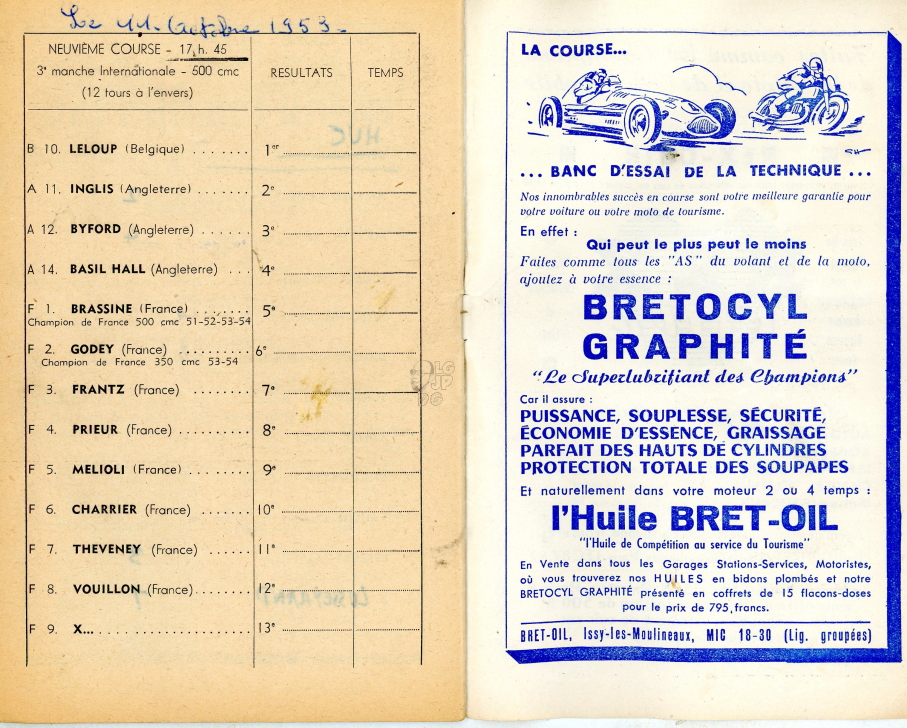 Le 11. Octobre 1953.
NEUVIÈME COURSE - 17 h. 45
3e manche Internationale - 500 cmc
(12 tours à l'envers)
RESULTATS
TEMPS
B 10. LELOUP (Belgique) ....... 1er ..............
A 11. INGLIS (Angleterre) ....... 2e ..............
A 12. BYFORD (Angleterre) ....... 3e ..............
A 14. BASIL HALL (Angleterre) ... 4e ..............
F 1. BRASSINE (France) ....... 5e ..............
Champion de France 500 cmc 51-52-53-54
F 2. GODEY (France) .......... 6e ..............
Champion de France 350 cmc 53-54
F 3. FRANTZ (France) .......... 7e ..............
F 4. PRIEUR (France) .......... 8e ..............
F 5. MELIOLI (France) ......... 9e ..............
F 6. CHARRIER (France) ....... 10e ..............
F 7. THEVENEY (France) ...... 11e ..............
F 8. VOUILLON (France) ....... 12e ..............
F 9. X... ...................... 13e ..............
LA COURSE...
... BANC D'ESSAI DE LA TECHNIQUE ...
Nos innombrables succès en course sont votre meilleure garantie pour
votre voiture ou votre moto de tourisme.
En effet :
Qui peut le plus peut le moins
Faites comme tous les "AS" du volant et de la moto,
ajoutez à votre essence :
BRETOCYL
GRAPHITÉ
"Le Superlubrifiant des Champions"
Car il assure :
PUISSANCE, SOUPLESSE, SÉCURITÉ,
ÉCONOMIE D'ESSENCE, GRAISSAGE
PARFAIT DES HAUTS DE CYLINDRES
PROTECTION TOTALE DES SOUPAPES
Et naturellement dans votre moteur 2 ou 4 temps :
l'Huile BRET-OIL
"l'Huile de Compétition au service du Tourisme"
En Vente dans tous les Garages Stations-Services, Motoristes,
où vous trouverez nos HUILES en bidons plombés et notre
BRETOCYL GRAPHITÉ présenté en coffrets de 15 flacons-doses
pour le prix de 795, francs.
BRET-OIL, Issy-les-Moulineaux, MIC 18-30 (Lig. groupées)